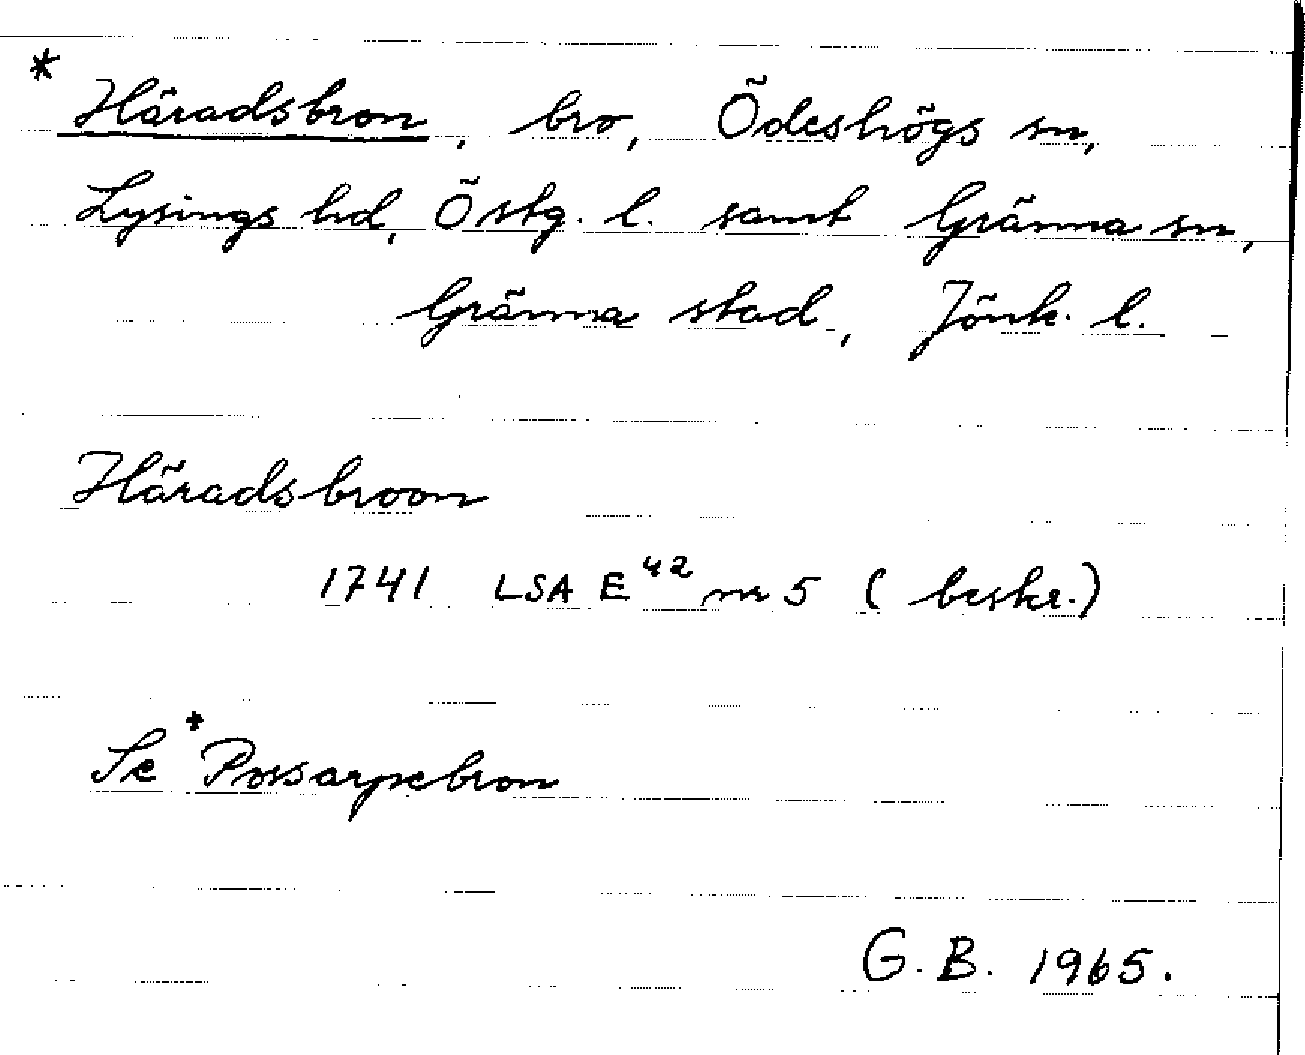 * Häradsbron, bro, Ödeshögs sn,
Lysings hd, Östg. l. samt Gränna sn,
Gränna stad, Jönk. l.
Häradsbroon
1741 LSA E42 nr 5 (beskr.)
Se *Possarpebron
G. B. 1965.